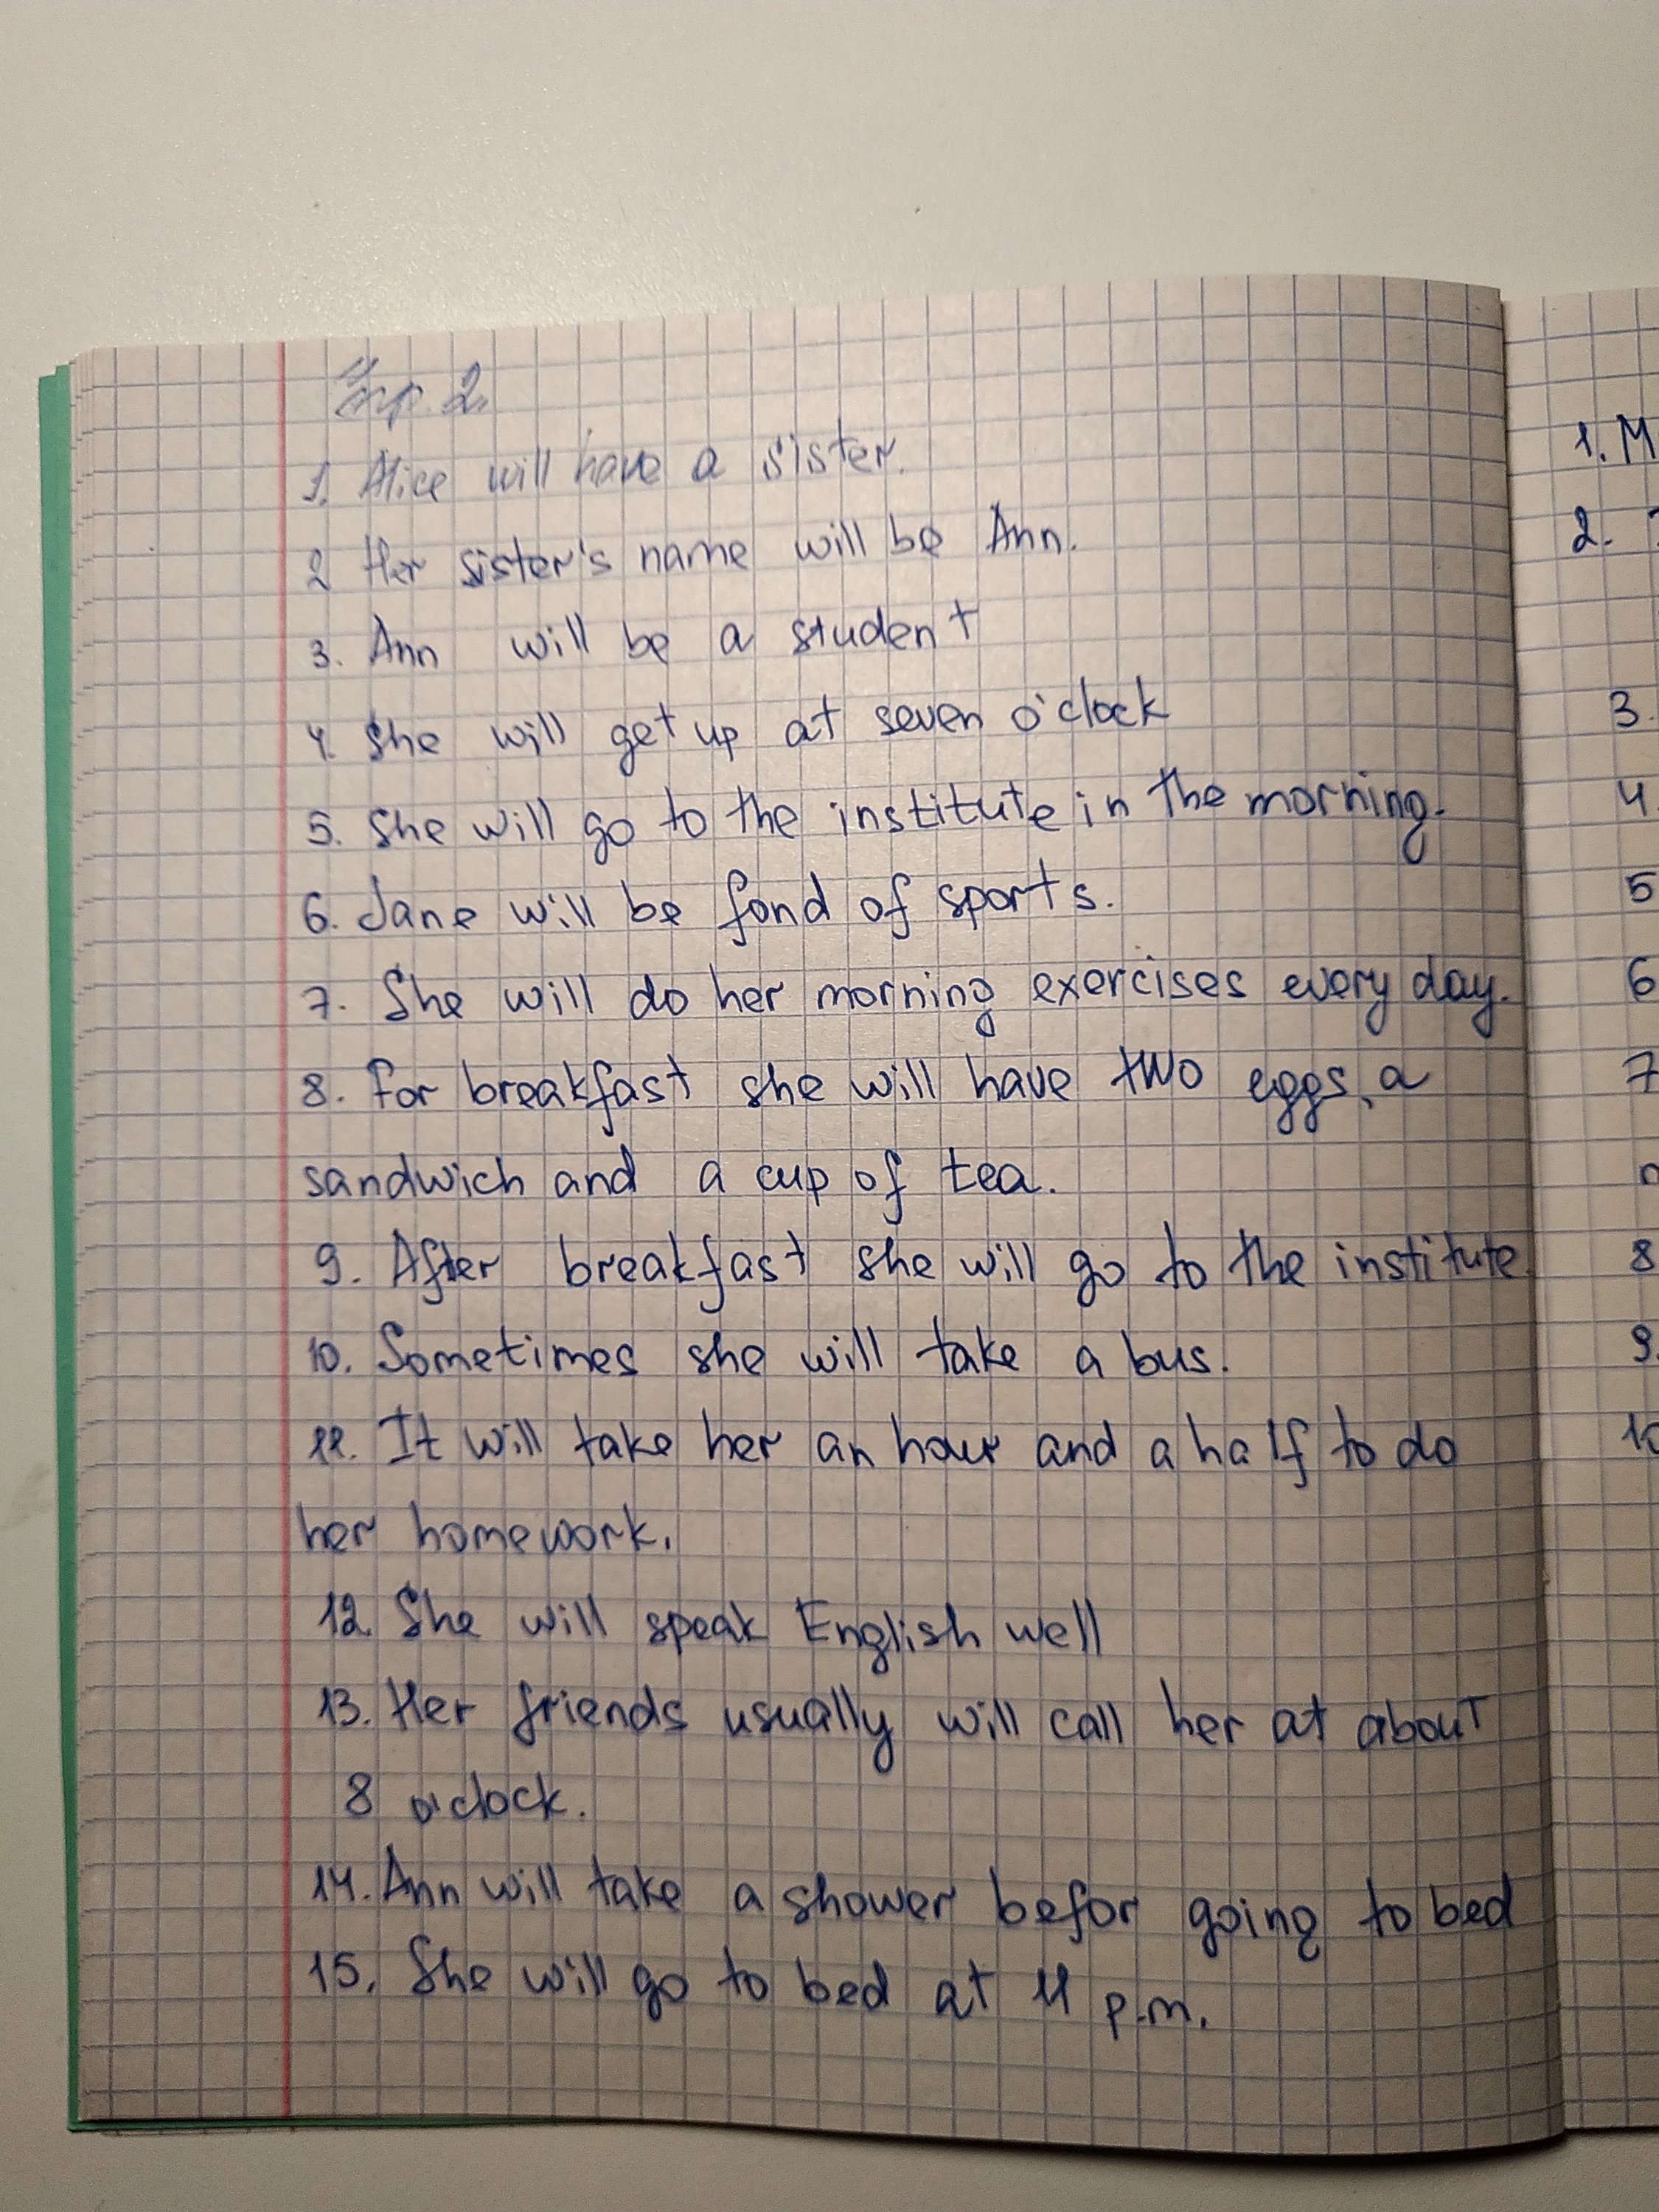 Упр. 2.
1. Alice will have a sister.
2 Her sister's name will be Ann.
3. Ann will be a student
4. She will get up at seven o'clock
5. She will go to the institute in the morning.
6. Jane will be fond of sports.
7. She will do her morning exercises every day.
8. For breakfast she will have two eggs, a
sandwich and a cup of tea.
9. After breakfast she will go to the institute.
10. Sometimes she will take a bus.
11. It will take her an hour and a half to do
her homework.
12. She will speak English well
13. Her friends usually will call her at about
8 o'clock.
14. Ann will take a shower befor going to bed
15. She will go to bed at 11 p.m.
1. M
2.
3.
4.
5
6
7
8
9.
10